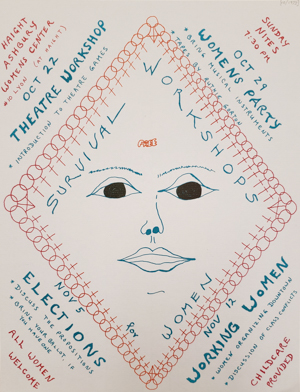 HAIGHT
ASHBURY
WOMENS CENTER
OCT 22
THEATRE WORKSHOP
* INTRODUCTION TO THEATRE GAMES
SUNDAY
NITES
7:30 PM
OCT 29
WOMENS PARTY
* BRING MUSICAL INSTRUMENTS
FREE
SURVIVAL
WORKSHOPS
for
WOMEN
NOV 5
ELECTIONS
* DISCUSS THE PROPOSITIONS
* BRING YOUR BALLOT
NOV 12
WORKING WOMEN
* WOMEN ORGANIZING DOWNTOWN
* DISCUSSION OF CLASS CONFLICTS
ALL WOMEN
WELCOME
CHILDCARE
PROVIDED